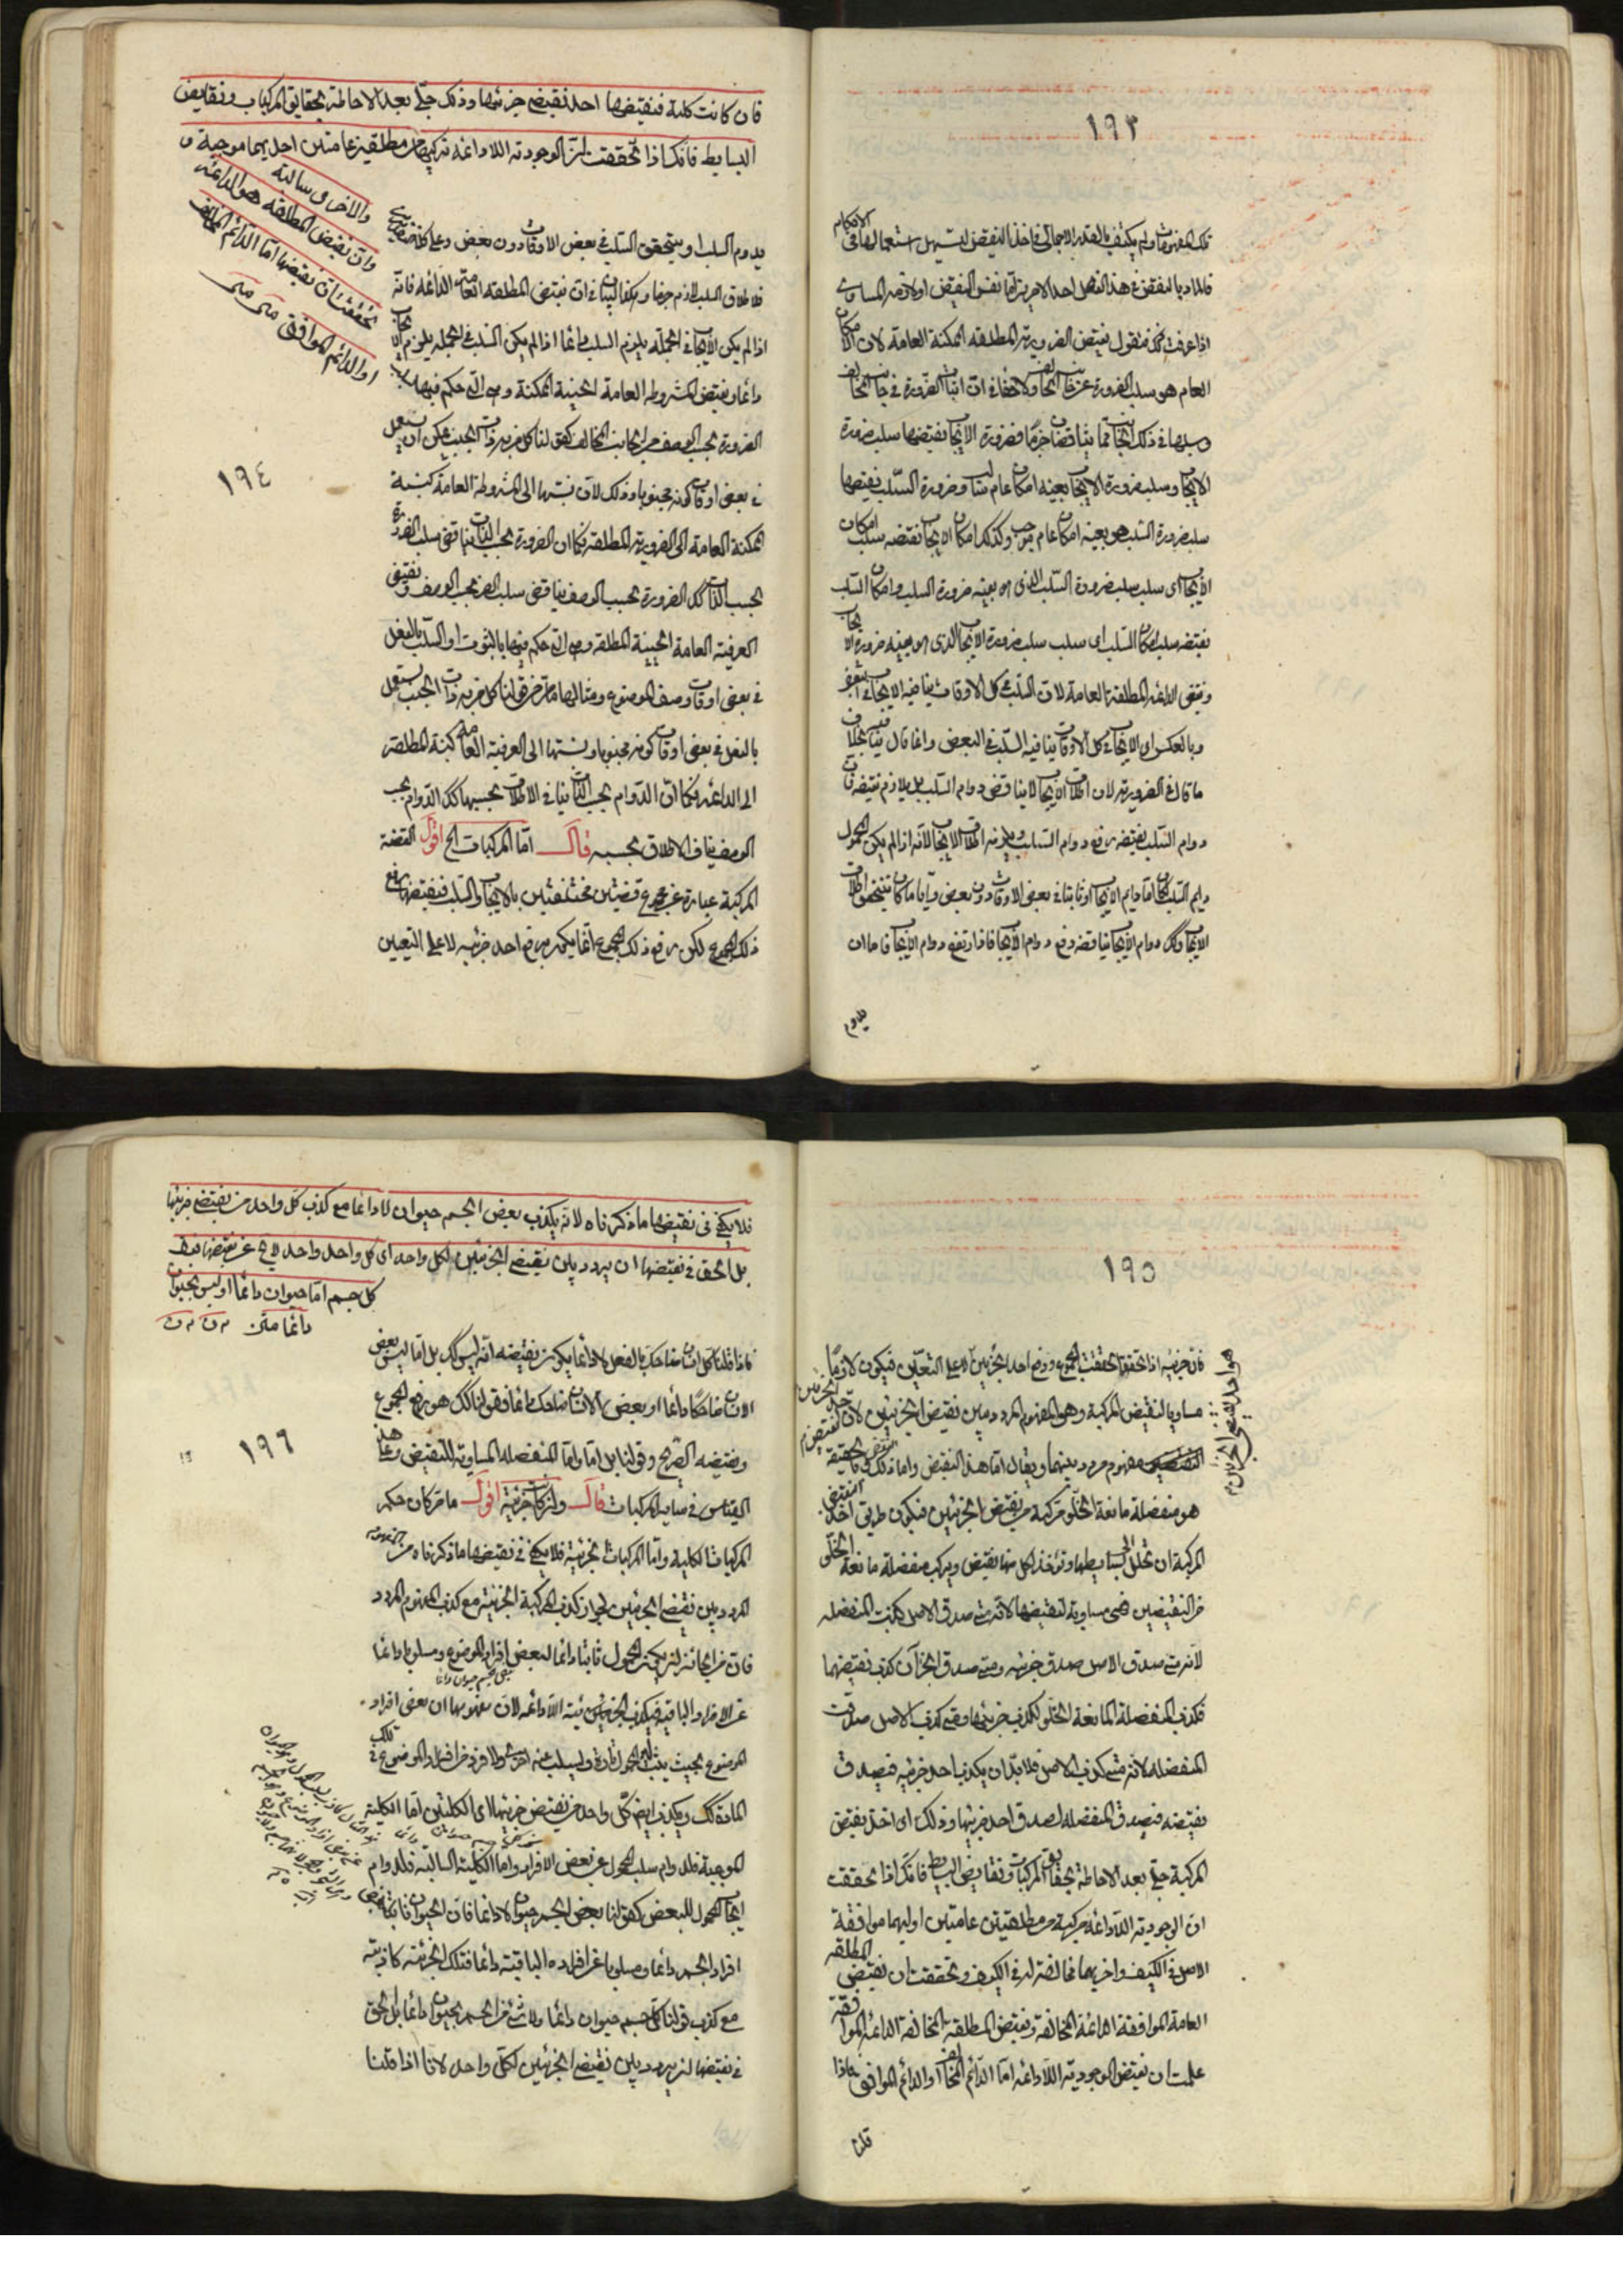 ١٩٣
تلك المفهومات ولم يكتف بالقدر الاجمالي في اخذ النقيض ليسهل استعمالها في الاحكام
فالمراد بالنقيض في هذا الفصل احد الامرين اما نفس النقيض او لازمه المساوي
اذا عرفت هذا فنقول نقيض الضرورية المطلقة الممكنة العامة لان الامكان
العام هو سلب الضرورة عن الجانب المخالف ولا خفاء في ان اثبات الضرورة في جانب المخالف
وسلبها في ذلك الجانب مما يتناقضان جزما فضرورة الايجاب نقيضها سلب ضرورة
الايجاب وسلب ضرورة الايجاب بعينه امكان عام سالب وضرورة السلب نقيضها
سلب ضرورة السلب وهو بعينه امكان عام موجب وكذلك امكان الايجاب نقيضه سلب امكان
الايجاب اى سلب سلب ضرورة السلب الذى هو بعينه ضرورة السلب وامكان السلب
نقيضه سلب امكان السلب اى سلب سلب ضرورة الايجاب الذى هو بعينه ضرورة الايجاب
ونقيض الدائمة المطلقة العامة لان السلب في كل الاوقات ينافيه الايجاب في البعض
وبالعكس اى الايجاب في كل الاوقات ينافيه السلب في البعض وانما قال ينافيه بخلاف
ما قال في الضرورية لان اطلاق الايجاب لا يناقض دوام السلب بل يلازم نقيضه فان
دوام السلب نقيضه رفع دوام السلب ويلزمه اطلاق الايجاب لانه اذا لم يكن المحمول
دايم السلب لكان اما دايم الايجاب او ثابتا في بعض الاوقات دون بعض وايا ما كان يتحقق اطلاق
الايجاب وكذا دوام الايجاب يناقضه رفع دوام الايجاب فاذا ارتفع دوام الايجاب فاما ان
يدوم
فان كانت كلية فنقيضها احد نقيضى جزئيها وذلك جلي بعد الاحاطة بحقايق المركبات ونقايض
البسايط فانك اذا تحققت ان الوجودية اللادائمة تركيبها من مطلقتين عامتين احديهما موجبة و
والاخرى سالبة
وان نقيض المطلقة هو الدائمة
تحققت ان نقيضها اما الدائم المخالف
او الدائم الموافق متن متن
يدوم السلب او يتحقق السلب في بعض الاوقات دون بعض وعلى كلا التقديرين
فاطلاق السلب لازم جزما وهكذا البيان في ان نقيض المطلقة العامة الدائمة فانه
اذا لم يكن الايجاب في الجملة يلزم السلب دائما اذا لم يكن السلب في الجملة يلزم الايجاب
دائما ونقيض المشروطة العامة الحينية الممكنة وهى التى حكم فيها بسلب
الضرورة بحسب الوصف من الجانب المخالف كقولنا كل من به ذات الجنب يمكن ان يسعل
في بعض اوقات كونه مجنوبا وذلك لان نسبتها الى المشروطة العامة كنسبة
الممكنة العامة الى الضرورية المطلقة فكما ان الضرورة بحسب الذات يناقض سلب الضرورة
بحسب الذات كذلك الضرورة بحسب الوصف يناقض سلب الضرورة بحسب الوصف ونقيض
العرفية العامة الحينية المطلقة وهى التى حكم فيها بالثبوت او السلب بالفعل
في بعض اوقات وصف الموضوع ومثالها ما مر من قولنا كل من به ذات الجنب يسعل
بالفعل في بعض اوقات كونه مجنوبا ونسبتها الى العرفية العامة كنسبة المطلقة
الى الدائمة فكما ان الدوام بحسب الذات ينافي الاطلاق بحسبها كذلك الدوام بحسب
الوصف ينافي الاطلاق بحسبه قال اما المركبات الخ اقول القضية
المركبة عبارة عن مجموع قضيتين مختلفتين بالايجاب والسلب فنقيضها رفع
ذلك المجموع لكن رفع ذلك المجموع انما يكون برفع احد جزئيه لا على التعيين
١٩٤
١٩٥
فان جزئيه اذا تحققا تحقق المجموع ورفع احد الجزئين لا على التعيين فيكون لازما
مساويا لنقيض المركبة وهو المفهوم المردد بين نقيضى الجزئين لان
مفهوم مردد بينهما ويقال اما هذا النقيض واما ذلك النقيض وبالحقيقة
هو منفصلة مانعة الخلو مركبة من نقيضى الجزئين فيكون طريق اخذ النقيض
المركبة ان تحلل الى بسايطها وتؤخذ لكل منها نقيض ويركب منفصلة مانعة الخلو
من النقيضين فهى مساوية لنقيضها لانه متى صدق الاصل كذبت المنفصلة
لانه متى صدق الاصل صدق جزئيه ومتى صدق الجزآن كذب نقيضهما
فكذب المنفصلة المانعة الخلو لكذب جزئيها ومتى كذب الاصل صدقت
المنفصلة لانه متى كذب الاصل فلا بد ان يكذب احد جزئيه فيصدق
نقيضه فيصدق المنفصلة لصدق احد جزئيها وذلك اى اخذ نقيض
المركبة جلي بعد الاحاطة بحقايق المركبات ونقايض البسايط فانك اذا تحققت
ان الوجودية اللادائمة مركبة من مطلقتين عامتين اوليهما موافقة
الاصل في الكيف واخريهما مخالفة له في الكيف وتحققت ان نقيض المطلقة
العامة الموافقة الدائمة المخالفة ونقيض المطلقة المخالفة الدائمة الموافقة
علمت ان نقيض الوجودية اللادائمة اما الدائم المخالف او الدائم الموافق فاذا
قلنا
فلا يكفي في نقيضها ما ذكرناه لانه يكذب بعض الجسم حيوان لا دائما مع كذب كل واحد من نقيضى جزئيها
بل الحق في نقيضها ان يردد بين نقيضى الجزئين لكل واحد اى كل واحد واحد لا يخ عن نقيضهما فيقال
كل جسم اما حيوان دائما او ليس بحيوان
دائما متن
فاذا قلنا كل انسان ضاحك بالفعل لا دائما يكون نقيضه انه ليس كذلك بل اما ليس بعض
الانسان ضاحكا دائما او بعض الانسان ضاحك دائما فقولنا ليس كذلك هو رفع المجموع
ونقيضه الصريح وقولنا بل اما واما المنفصلة المساوية للنقيض وعلى هذا
القياس في ساير المركبات قال وان كانت جزئية اقول ما مر كان حكم
المركبات الكلية واما المركبات الجزئية فلا يكفي في نقيضها ما ذكرناه من المفهوم
المردد بين نقيضى الجزئين لجواز كذب المركبة الجزئية مع كذب المفهوم المردد
فان من الجائز ان يكون المحمول ثابتا دائما لبعض افراد الموضوع ومسلوبا دائما
عن الافراد الباقية فيكذب الجزئية اللادائمة لان مفهومها ان بعض افراد
الموضوع بحيث يثبت له المحمول تارة ويسلب عنه اخرى ولا فرد من افراد الموضوع في تلك
المادة كذلك ويكذب ايضا كل واحد من نقيضى جزئيها اى الكليتين اما الكلية
الموجبة فلدوام سلب المحمول عن بعض الافراد واما الكلية السالبة فلدوام
ايجاب المحمول للبعض كقولنا بعض الجسم حيوان لا دائما فان الحيوان ثابت لبعض
افراد الجسم دائما ومسلوب عن افراده الباقية دائما فتلك الجزئية كاذبة
مع كذب قولنا كل جسم حيوان دائما ولا شئ من الجسم بحيوان دائما بل الحق
في نقيضها ان يردد بين نقيضى الجزئين لكل واحد لانا اذا قلنا
١٩٦